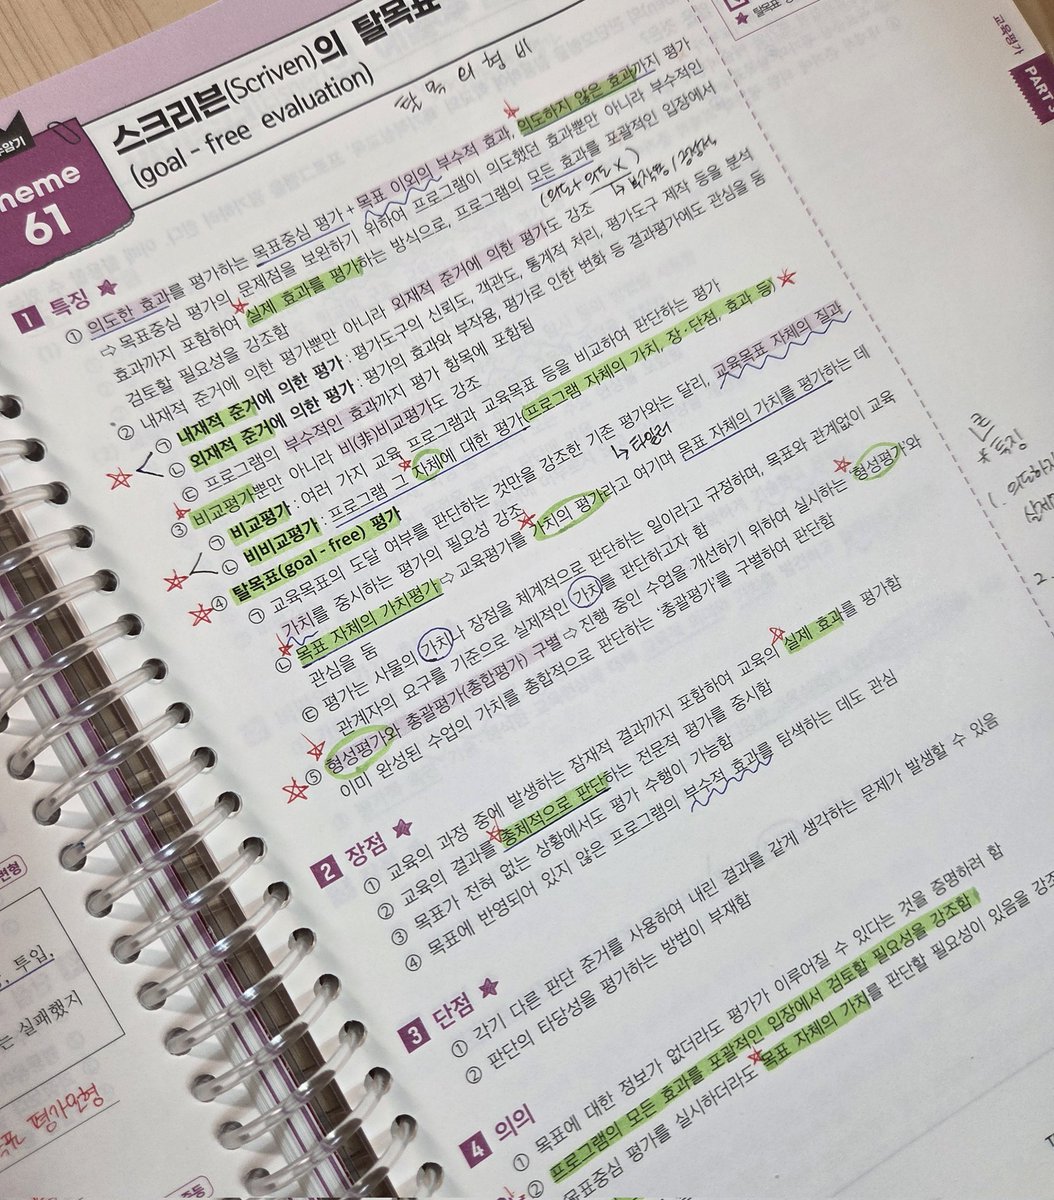 스크리븐(Scriven)의 탈목표
(goal - free evaluation)
탈 목 의 형 비
61
1 특징
① 의도한 효과를 평가하는 목표중심 평가 + 목표 이외의 부수적 효과, 의도하지 않은 효과까지 평가
⇨ 목표중심 평가의 문제점을 보완하기 위하여 프로그램이 의도했던 효과뿐만 아니라 부수적인
효과까지 포함하여 실제 효과를 평가하는 방식으로, 프로그램의 모든 효과를 포괄적인 입장에서
검토할 필요성을 강조함
② 내재적 준거에 의한 평가뿐만 아니라 외재적 준거에 의한 평가도 강조
㉠ 내재적 준거에 의한 평가 : 평가도구의 신뢰도, 객관도, 통계적 처리, 평가도구 제작 등을 분석
㉡ 외재적 준거에 의한 평가 : 평가의 효과와 부작용, 평가로 인한 변화 등 결과평가에도 관심을 둠
㉢ 프로그램의 부수적인 효과까지 평가 항목에 포함됨
③ 비교평가뿐만 아니라 비(非)비교평가도 강조
㉠ 비교평가 : 여러 가지 교육 프로그램과 교육목표 등을 비교하여 판단하는 평가
㉡ 비비교평가 : 프로그램 그 자체에 대한 평가(프로그램 자체의 가치, 장·단점, 효과 등)
④ 탈목표(goal - free) 평가
→ 타일러
㉠ 교육목표의 도달 여부를 판단하는 것만을 강조한 기존 평가와는 달리, 교육목표 자체의 질과
가치를 중시하는 평가의 필요성 강조
㉡ 목표 자체의 가치평가 ⇨ 교육평가를 가치의 평가라고 여기며 목표 자체의 가치를 평가하는 데
관심을 둠
㉢ 평가는 사물의 가치나 장점을 체계적으로 판단하는 일이라고 규정하며, 목표와 관계없이 교육
관계자의 요구를 기준으로 실제적인 가치를 판단하고자 함
⑤ 형성평가와 총괄평가(총합평가) 구별 ⇨ 진행 중인 수업을 개선하기 위하여 실시하는 '형성평가'와
이미 완성된 수업의 가치를 총합적으로 판단하는 '총괄평가'를 구별하여 판단함
2 장점
① 교육의 과정 중에 발생하는 잠재적 결과까지 포함하여 교육의 실제 효과를 평가함
② 교육의 결과를 총체적으로 판단하는 전문적 평가를 중시함
③ 목표가 전혀 없는 상황에서도 평가 수행이 가능함
④ 목표에 반영되어 있지 않은 프로그램의 부수적 효과를 탐색하는 데도 관심
3 단점
① 각기 다른 판단 준거를 사용하여 내린 결과를 같게 생각하는 문제가 발생할 수 있음
② 판단의 타당성을 평가하는 방법이 부재함
4 의의
① 목표에 대한 정보가 없더라도 평가가 이루어질 수 있다는 것을 증명하려 함
② 프로그램의 모든 효과를 포괄적인 입장에서 검토할 필요성을 강조함
목표중심 평가를 실시하더라도 목표 자체의 가치를 판단할 필요성이 있음을 강조
교육평가
투입,
는 실패했지
평가원형
특징
2.